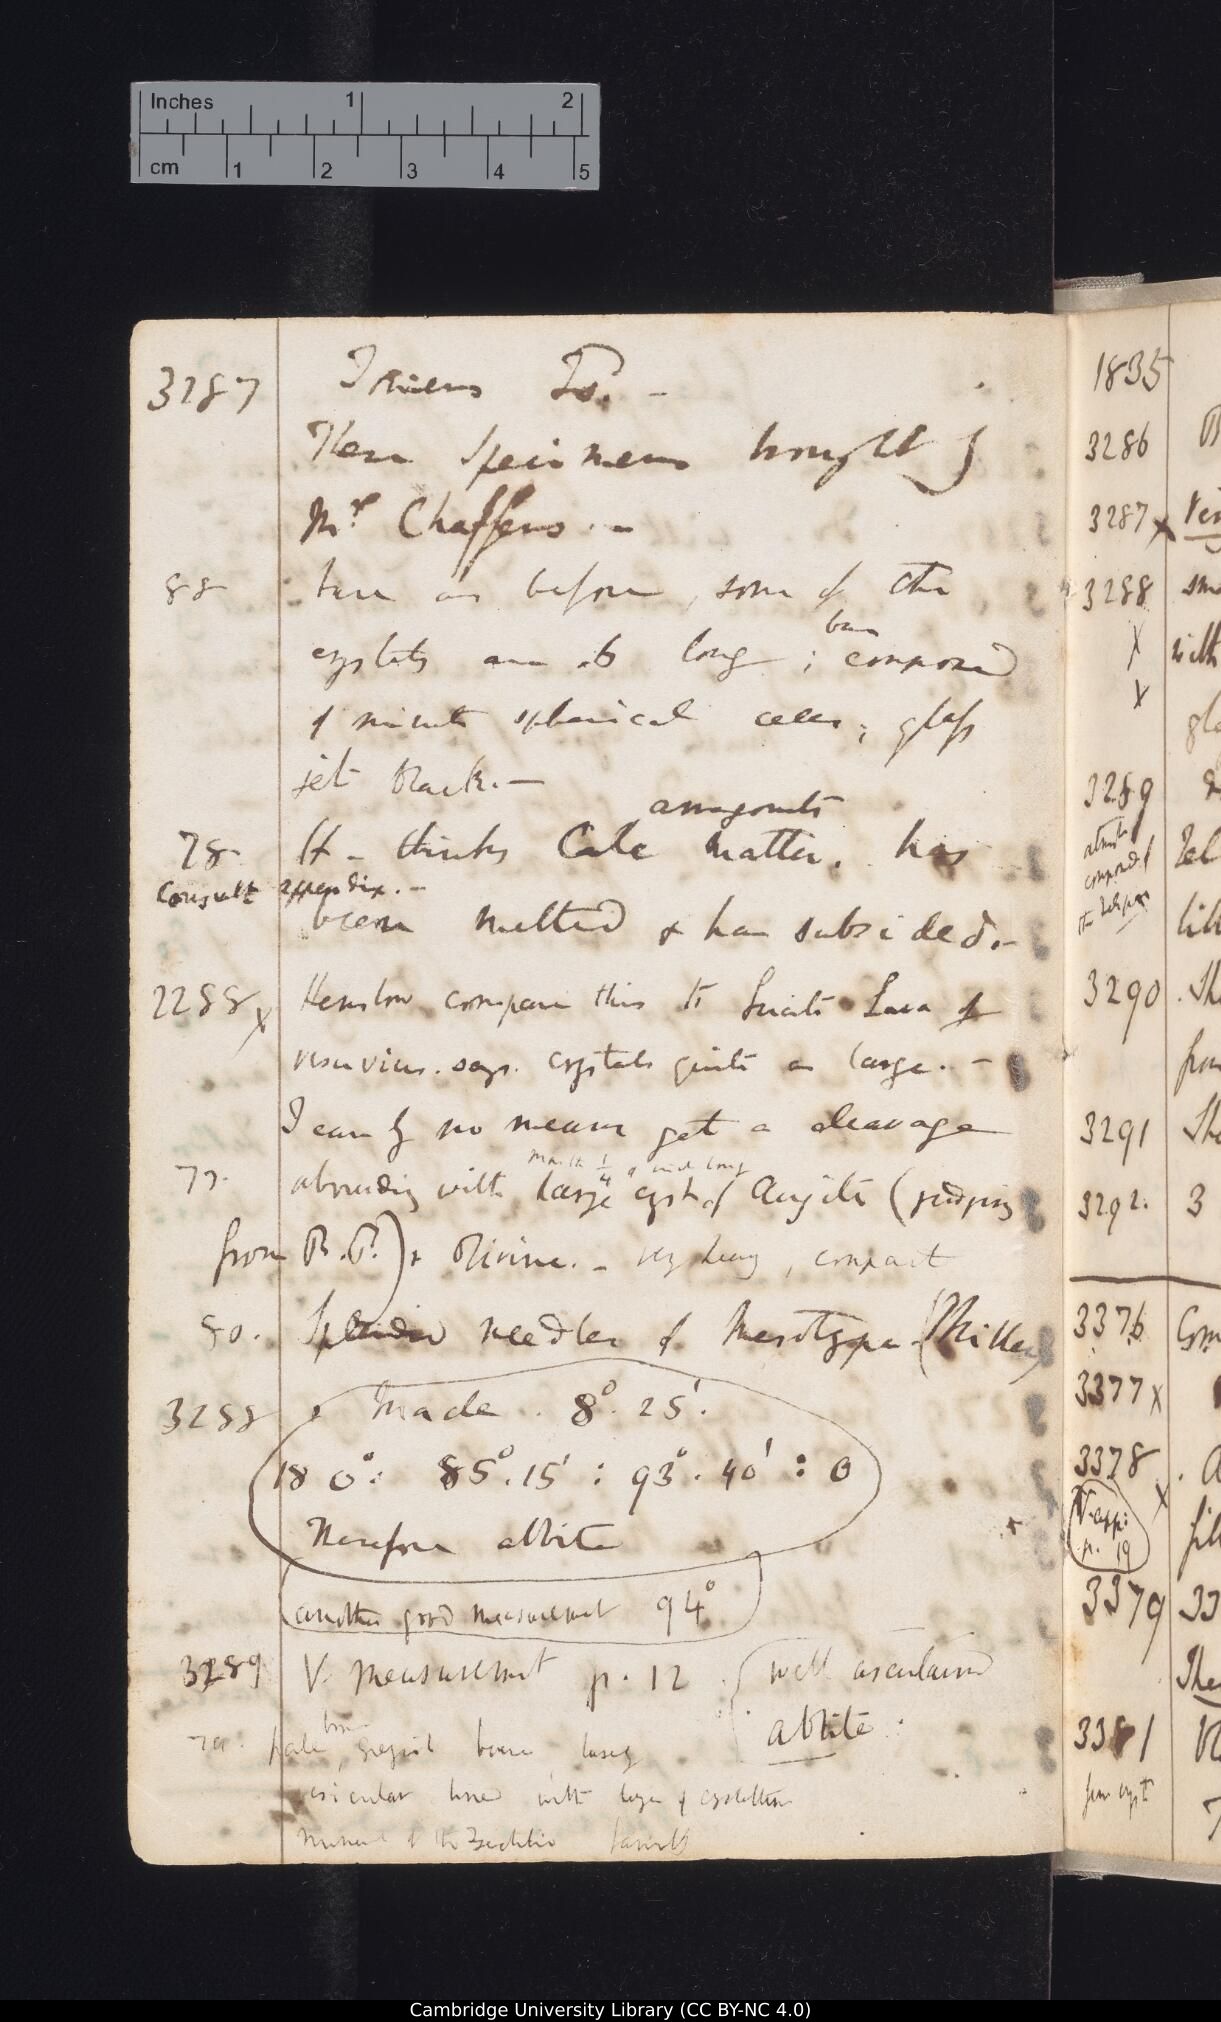 Inches 1 2
cm 1 2 3 4 5
3287 James Is. —
These specimens brought by
Mr Chaffers. —
88 base as before, some of the
base
crystals are .6 long; composed
of minute spherical cells; glass
jet black. —
arragonite
78 H. thinks Calc matter. has
Consult appendix. —
been melted & has subsided. —
2288 x Henslow compares this to Leucite Lava of
Vesuvius. says. crystals quite as large. —
I can by no means get a cleavage
1/4 of inch long
77. abounding with large cryst of Augite (judging
from B.P.) & Olivine. — very heavy, compact
80. Splendid needles of Mesotype. (Miller)
3288 Made. 8°. 25'.
180°: 85°.15' : 93°. 40' : 0
Therefore albite
another good measurement 94°
3289 V. measurement p. 12 well ascertained
albite
79. pale greyish base, largely
vesicular lined with layer of crystalline
mineral of the Zeolitic family
1835
3286
3287 x
3288
x
x
3289
composed of
3290
from
3291
3292. 3
3376
3377 x
3378
x
V. app:
p. 19
3379 33
3381
few cryst
Cambridge University Library (CC BY-NC 4.0)